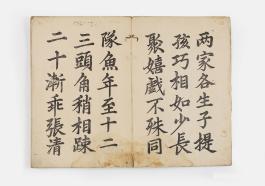 两家各生子提
孩巧相如少長
聚嬉戲不殊同
隊魚年至十二
三頭角稍相踈
二十漸乖張清